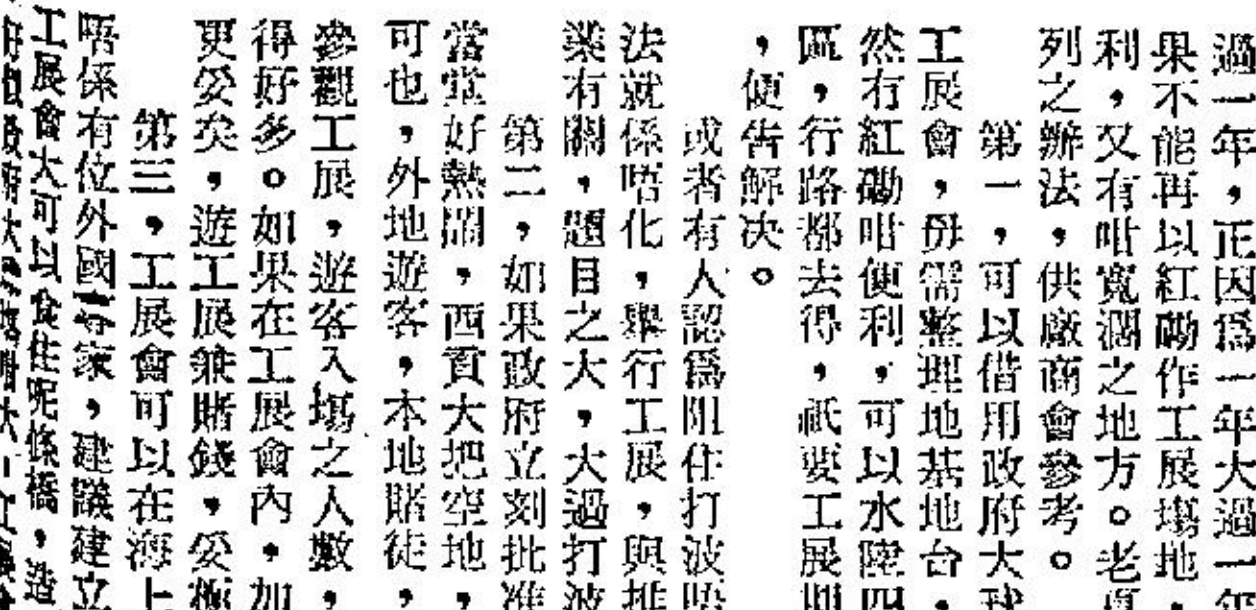 過一年，正因為一年大過一年
果不能再以紅磡作工展塲地，
利，又有咁寬濶之地方。老
列之辦法，供廠商會參考。
第一，可以借用政府大球
工展會，毋需整理地基地台，
然冇紅磡咁便利，可以水陸四
區，行路都去得，祇要工展期
，便告解决。
或者有人認爲阻住打波唔
法就係唔化，舉行工展，與推
業有關，題目之大，大過打波
第二，如果政府立刻批准
當堂好熱鬧，西貢大把空地，
可也，外地遊客，本地賭徒，
參觀工展，遊客入塲之人數，
得好多。如果在工展會內，加
更妥矣，遊工展兼賭錢，妥極
第三，工展會可以在海上
唔係有位外國專家，建議建立
工展會大可以食住呢條橋，造